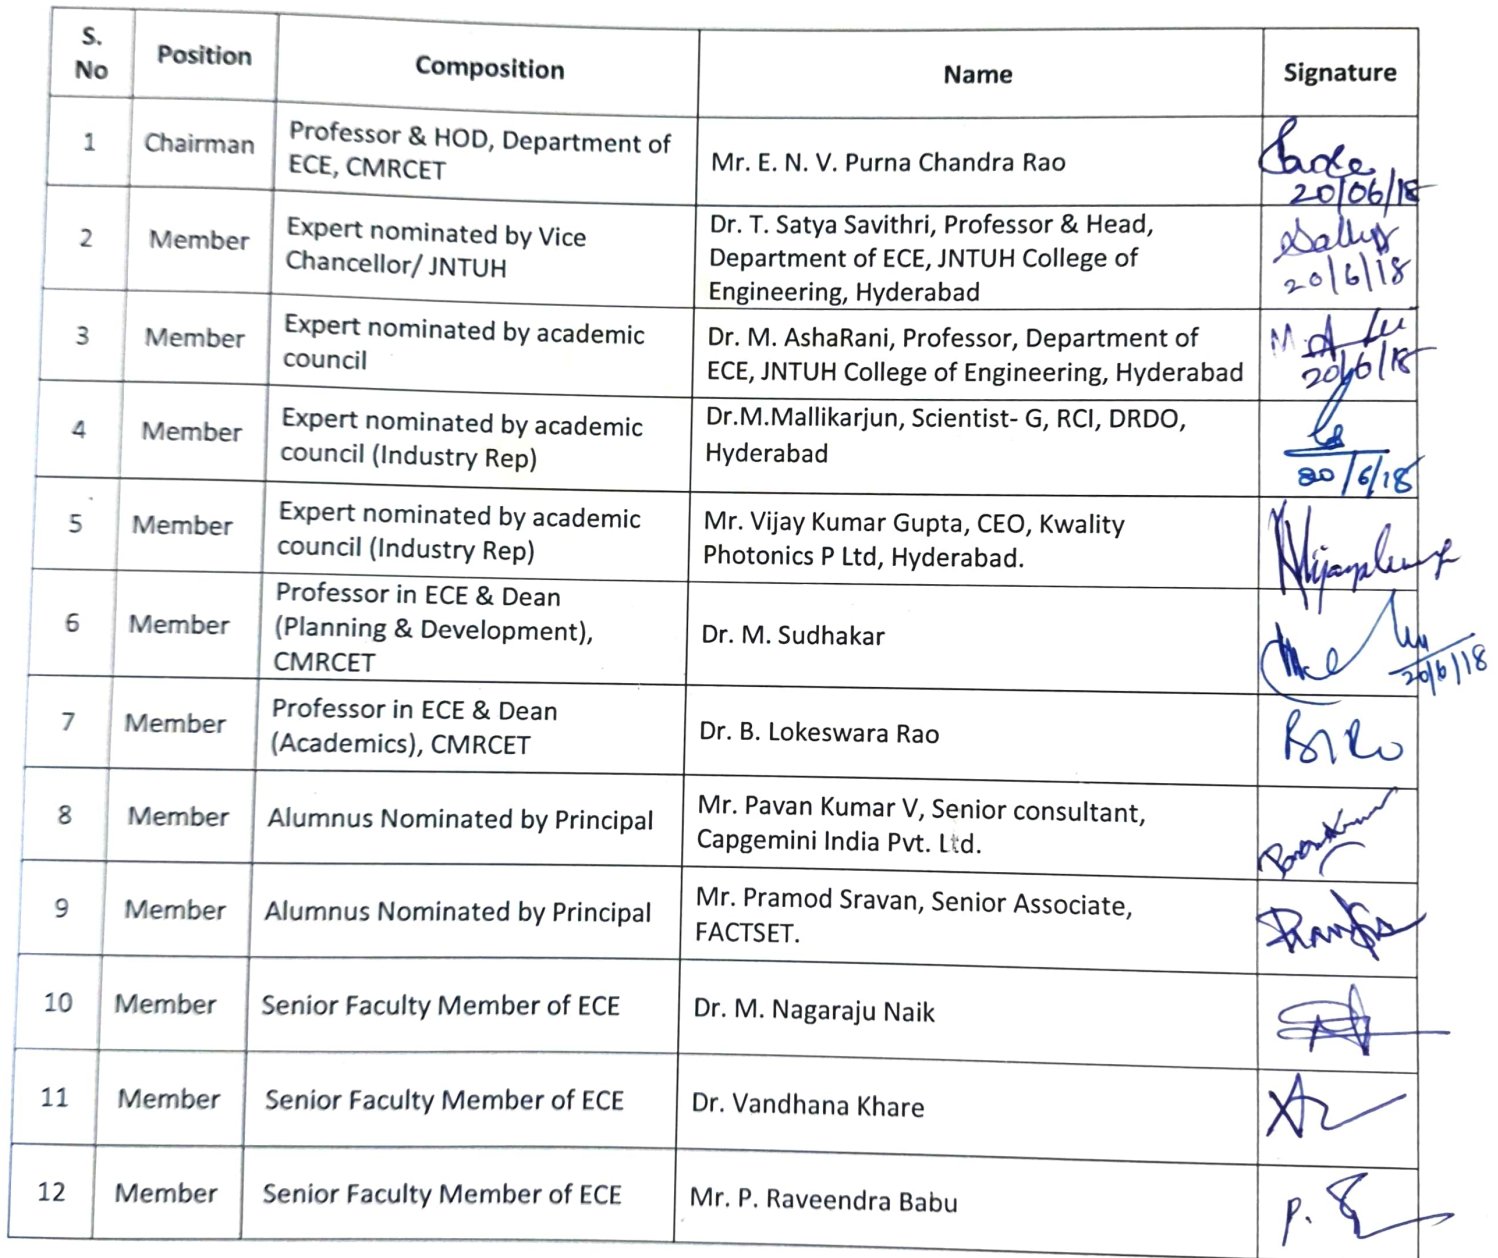 S.
No
Position
Composition
Name
Signature
1
Chairman
Professor & HOD, Department of
ECE, CMRCET
Mr. E. N. V. Purna Chandra Rao
20/06/18
2
Member
Expert nominated by Vice
Chancellor/ JNTUH
Dr. T. Satya Savithri, Professor & Head,
Department of ECE, JNTUH College of
Engineering, Hyderabad
20/6/18
3
Member
Expert nominated by academic
council
Dr. M. AshaRani, Professor, Department of
ECE, JNTUH College of Engineering, Hyderabad
20/6/18
4
Member
Expert nominated by academic
council (Industry Rep)
Dr.M.Mallikarjun, Scientist- G, RCI, DRDO,
Hyderabad
20/6/18
5
Member
Expert nominated by academic
council (Industry Rep)
Mr. Vijay Kumar Gupta, CEO, Kwality
Photonics P Ltd, Hyderabad.
6
Member
Professor in ECE & Dean
(Planning & Development),
CMRCET
Dr. M. Sudhakar
20/6/18
7
Member
Professor in ECE & Dean
(Academics), CMRCET
Dr. B. Lokeswara Rao
8
Member
Alumnus Nominated by Principal
Mr. Pavan Kumar V, Senior consultant,
Capgemini India Pvt. Ltd.
9
Member
Alumnus Nominated by Principal
Mr. Pramod Sravan, Senior Associate,
FACTSET.
10
Member
Senior Faculty Member of ECE
Dr. M. Nagaraju Naik
11
Member
Senior Faculty Member of ECE
Dr. Vandhana Khare
12
Member
Senior Faculty Member of ECE
Mr. P. Raveendra Babu